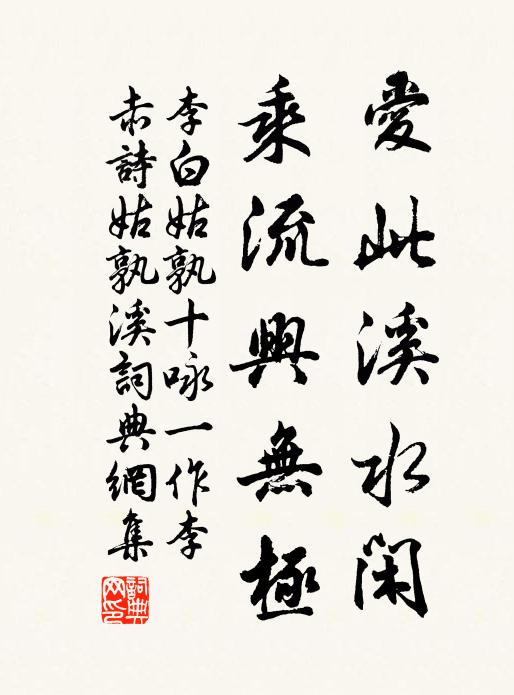 愛此溪水閑
乘流興無極
李白姑孰十咏一作李
赤詩姑孰溪詞典網集
詞典
网印